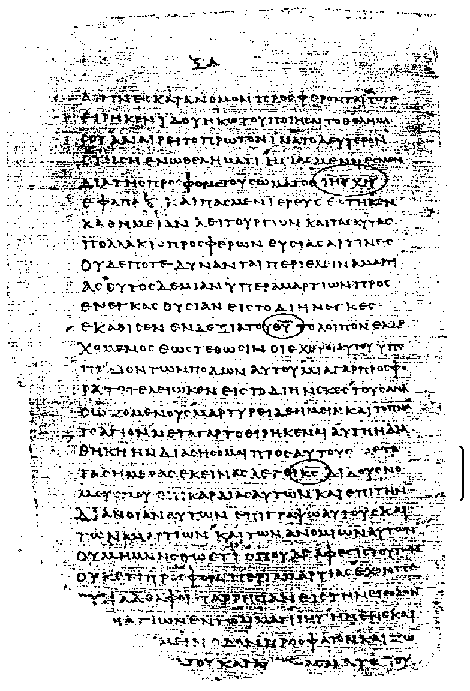 ΣΑ
ΚΑΤΑ ΝΟΜΟΝ ΠΡΟΣΦΕΡΟΝΤΑΙ ΤΟΤΕ
ΕΙΡΗΚΕΝ ΙΔΟΥ ΗΚΩ ΤΟΥ ΠΟΙΗΣΑΙ ΤΟ ΘΕΛΗΜΑ
ΣΟΥ ΑΝΑΙΡΕΙ ΤΟ ΠΡΩΤΟΝ ΙΝΑ ΤΟ ΔΕΥΤΕΡΟΝ
ΕΝ Ω ΘΕΛΗΜΑΤΙ ΗΓΙΑΣΜΕΝΟΙ ΕΣΜΕΝ
ΔΙΑ ΤΗΣ ΠΡΟΣΦΟΡΑΣ ΤΟΥ ΣΩΜΑΤΟΣ ΙΗΥ ΧΡΥ
ΕΦΑΠΑΞ ΚΑΙ ΠΑΣ ΜΕΝ ΙΕΡΕΥΣ ΕΣΤΗΚΕΝ
ΚΑΘ ΗΜΕΡΑΝ ΛΕΙΤΟΥΡΓΩΝ ΚΑΙ ΤΑΣ ΑΥΤΑΣ
ΠΟΛΛΑΚΙΣ ΠΡΟΣΦΕΡΩΝ ΘΥΣΙΑΣ ΑΙΤΙΝΕΣ
ΟΥΔΕΠΟΤΕ ΔΥΝΑΝΤΑΙ ΠΕΡΙΕΛΕΙΝ ΑΜΑΡΤΙ
ΑΣ ΟΥΤΟΣ ΔΕ ΜΙΑΝ ΥΠΕΡ ΑΜΑΡΤΙΩΝ ΠΡΟΣ
ΕΝΕΓΚΑΣ ΘΥΣΙΑΝ ΕΙΣ ΤΟ ΔΙΗΝΕΚΕΣ
ΕΚΑΘΙΣΕΝ ΕΝ ΔΕΞΙΑ ΤΟΥ ΘΥ ΤΟ ΛΟΙΠΟΝ ΕΚΔΕ
ΧΟΜΕΝΟΣ ΕΩΣ ΤΕΘΩΣΙΝ ΟΙ ΕΧΘΡΟΙ ΑΥΤΟΥ ΥΠΟ
ΠΟΔΙΟΝ ΤΩΝ ΠΟΔΩΝ ΑΥΤΟΥ ΜΙΑ ΓΑΡ ΠΡΟΣΦΟ
ΡΑ ΤΕΤΕΛΕΙΩΚΕΝ ΕΙΣ ΤΟ ΔΙΗΝΕΚΕΣ ΤΟΥΣ ΑΝΑ
ΣΩΖΟΜΕΝΟΥΣ ΜΑΡΤΥΡΕΙ ΔΕ ΗΜΕΙΝ ΚΑΙ ΤΟ
ΤΟ ΑΓΙΟΝ ΜΕΤΑ ΓΑΡ ΤΟ ΕΙΡΗΚΕΝΑΙ ΑΥΤΗ Η ΔΙΑ
ΘΗΚΗ ΗΝ ΔΙΑΘΗΣΟΜΑΙ ΠΡΟΣ ΑΥΤΟΥΣ ΜΕΤΑ
ΤΑΣ ΗΜΕΡΑΣ ΕΚΕΙΝΑΣ ΛΕΓΕΙ ΚΣ ΔΙΔΟΥΣ ΝΟ
ΜΟΥΣ ΜΟΥ ΕΠΙ ΚΑΡΔΙΑΣ ΑΥΤΩΝ ΚΑΙ ΕΠΙ ΤΗΝ
ΔΙΑΝΟΙΑΝ ΑΥΤΩΝ ΕΠΙΓΡΑΨΩ ΑΥΤΟΥΣ ΚΑΙ
ΤΩΝ ΑΜΑΡΤΙΩΝ ΚΑΙ ΤΩΝ ΑΝΟΜΙΩΝ ΑΥΤΩΝ
ΟΥ ΜΗ ΜΝΗΣΘΗΣΩ ΕΤΙ ΟΠΟΥ ΔΕ ΑΦΕΣΙΣ ΤΟΥΤΩΝ
ΟΥΚΕΤΙ ΠΡΟΣΦΟΡΑ ΠΕΡΙ ΑΜΑΡΤΙΑΣ ΕΧΟΝΤΕΣ
ΑΔΕΛΦΟΙ ΠΑΡΡΗΣΙΑΝ ΕΙΣ ΤΗΝ ΕΙΣΟΔΟΝ
ΑΓΙΩΝ ΕΝ ΤΩ ΑΙΜΑΤΙ ΙΗΥ
ΟΔΟΝ ΠΡΟΣΦΑΤΟΝ ΚΑΙ ΖΩ